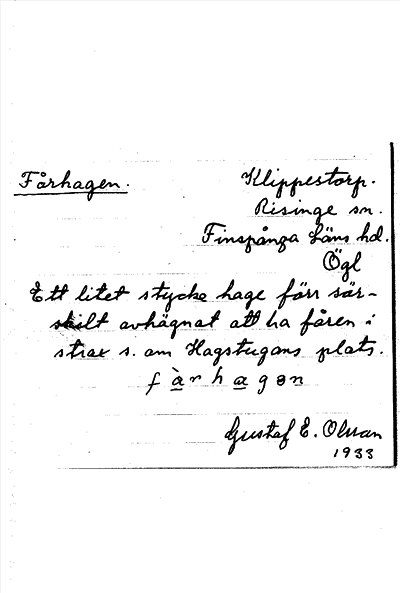 Fårhagen.
Klippestorp.
Risinge sn.
Finspånga läns hd.
Ögl
Ett litet stycke hage förr sär-
skilt avhägnat att ha fåren i
strax s. om Hagstugans plats.
fàrhagən
Gustaf E. Olsson
1933